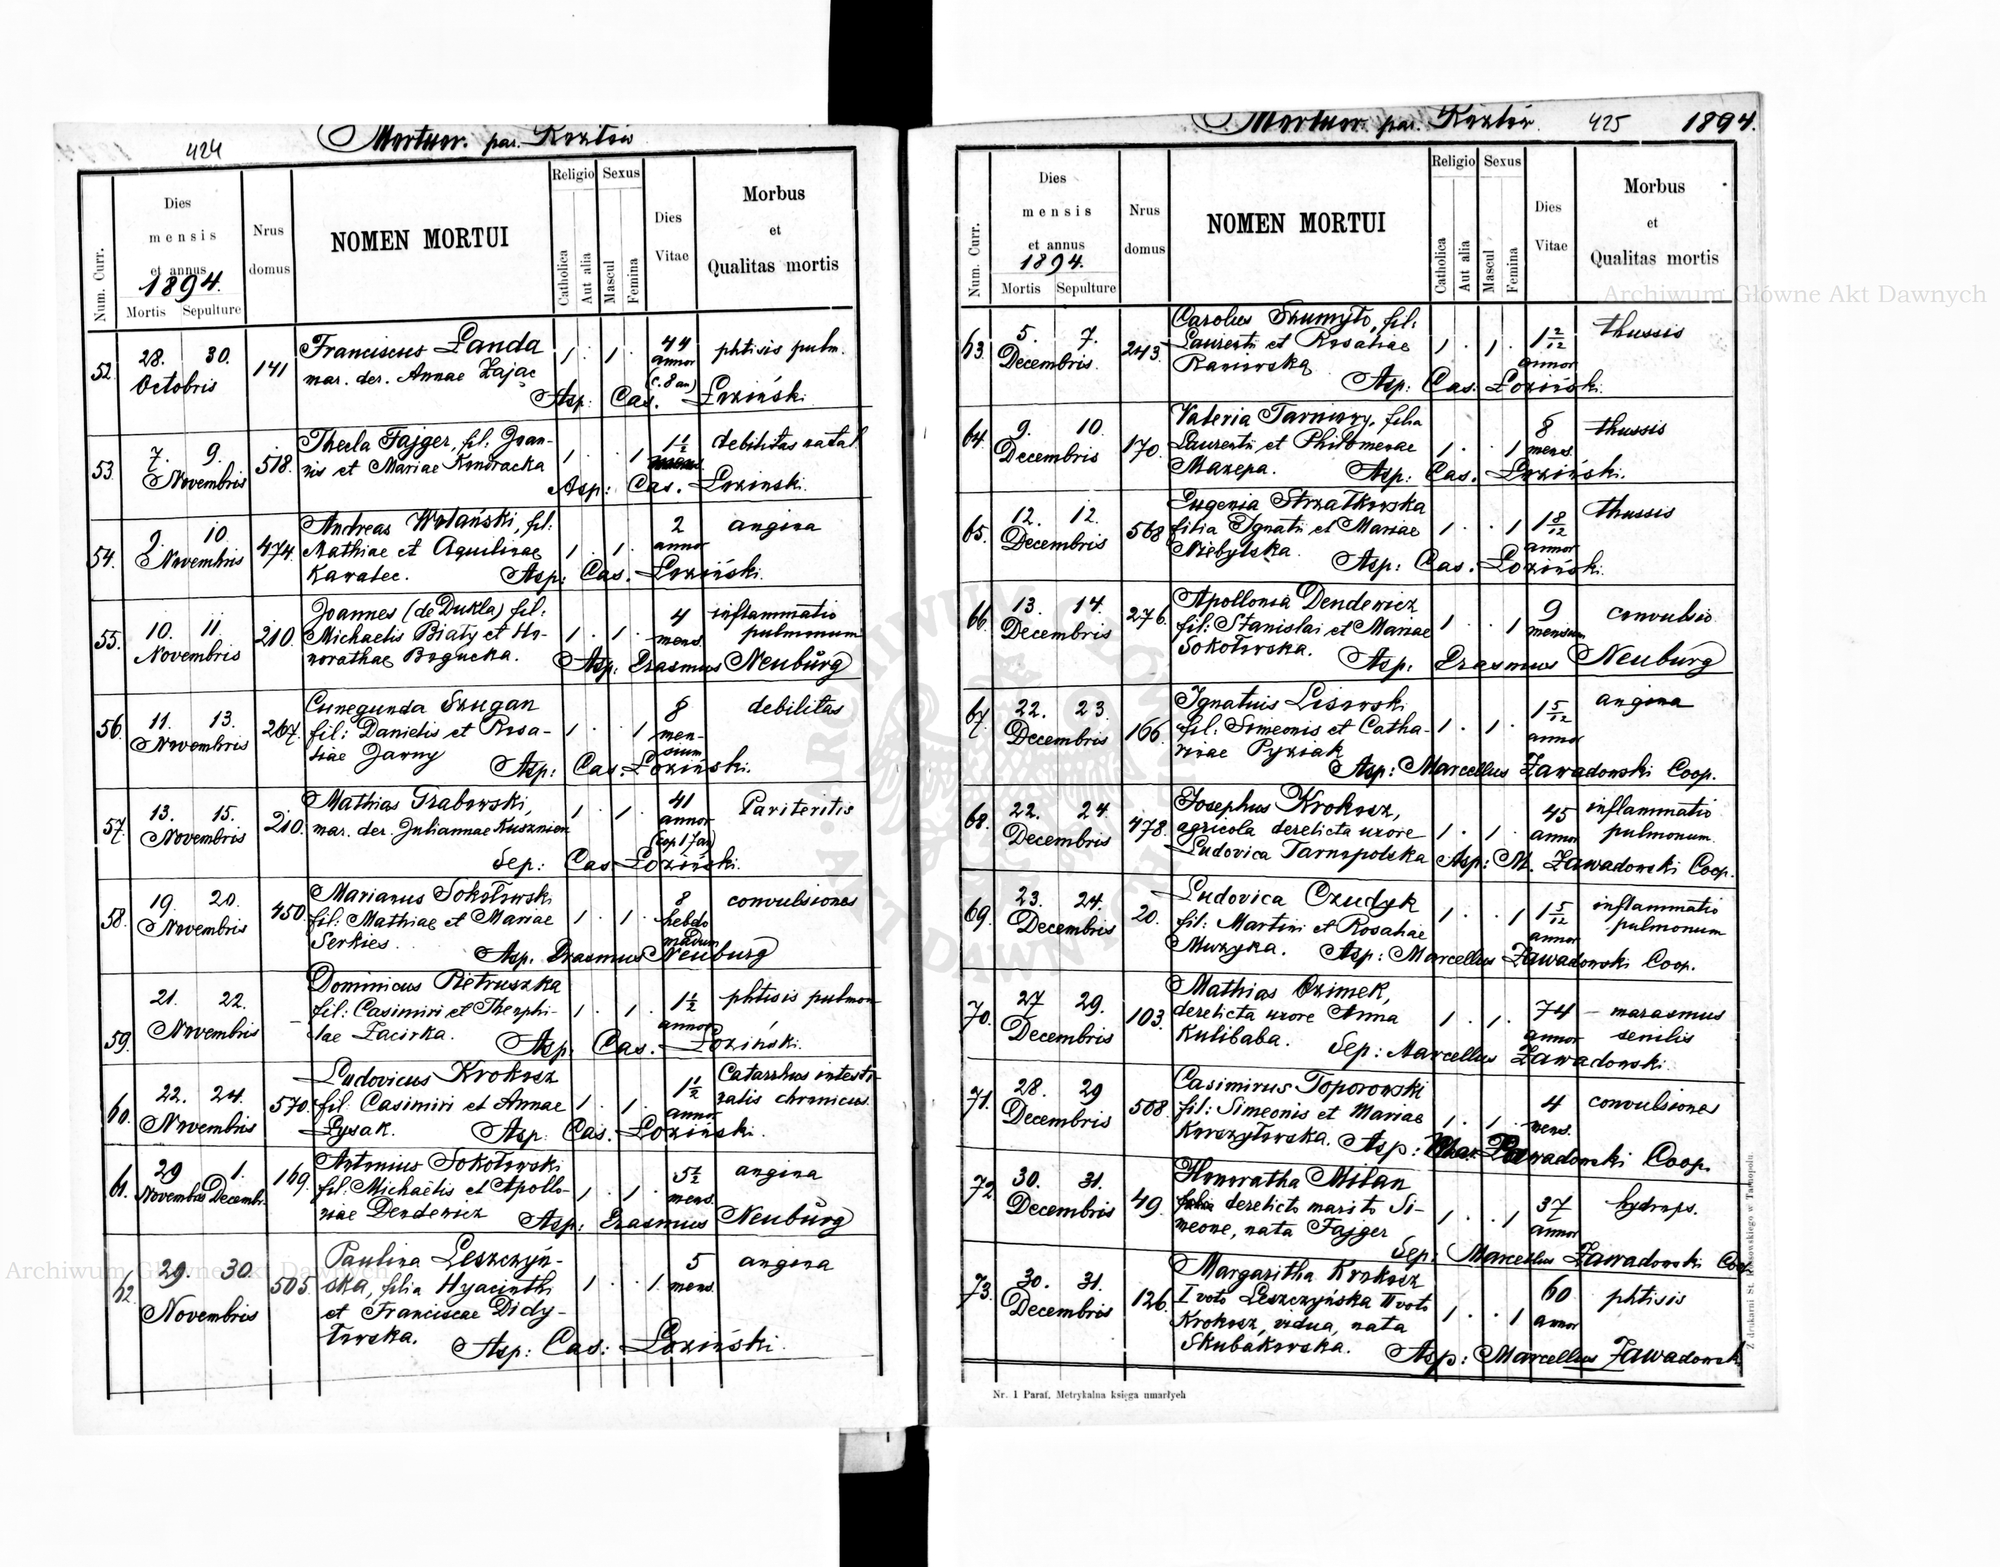 424
Mortuor. par. Kozłów
Num. Curr.
Dies
mensis
et annus
1894.
Mortis Sepulture
Nrus
domus
NOMEN MORTUI
Religio
Catholica
Aut alia
Sexus
Mascul
Femina
Dies
Vitae
Morbus
et
Qualitas mortis
52. 28. 30. 141 Franciscus Landa 1 . 1 . 44 phtisis pulm.
Octobris mar. der. Annae Zając annor (c. 8 an)
Asp: Cas. Łoziński
53. 7. 9. 518. Thecla Fajger, fil: Joan- 1 . . 1 1½ debilitas natal.
Novembris nis et Mariae Kondracka
Asp: Cas. Łoziński.
54. 9. 10. 474. Andreas Wolański, fil: 1 . 1 . 2 angina
Novembris Mathiae et Aquilinae annor
Karalec. Asp: Cas. Łoziński.
55. 10. 11. 210. Joannes (de Dukla) fil: 1 . 1 . 4 inflammatio
Novembris Michaelis Biały et Ho- mens. pulmonum
norathae Bogucka. Asp: Erasmus Neubürg
56. 11. 13. 267. Cunegunda Szugan 1 . . 1 8 debilitas
Novembris fil: Danielis et Rosa- men-
liae Jarny sium
Asp: Cas. Łoziński.
57. 13. 15. 210. Mathias Grabowski, 1 . 1 . 41 Pariteritis
Novembris mar. der. Juliannae Kusznien annor
(cop 17an)
Sep: Cas Łoziński.
58. 19. 20. 450. Marianus Sokołowski 1 . 1 . 8 convulsiones
Novembris fil: Mathiae et Mariae hebdo
Serkies. madum
Asp. Erasmus Neuburg
59. 21. 22. Dominicus Pietruszka 1 . 1 . 1½ phtisis pulmon
Novembris fil: Casimiri et Theophi- annor
lae Zacirka. Asp. Cas. Łoziński.
60. 22. 24. 570. Ludovicus Krokosz 1 . 1 . 1½ Catarrhus intesti-
Novembris fil: Casimiri et Annae annor nalis chronicus
Łysak. Asp: Cas. Łoziński.
61. 29 1. 169. Antonius Sokołowski 1 . 1 . 5½ angina
Novembris Decembr. fil: Michaëlis et Apollo- mens.
niae Dendewicz Asp: Erasmus Neubürg
62. 29. 30. 505. Paulina Leszczyń- 1 . . 1. 5 angina
Novembris ska, filia Hyacinthi mens.
et Franciscae Didy-
łowska. Asp: Cas: Łoziński.
Mortuor. par. Kozłów. 425 1894.
Num. Curr.
Dies
mensis
et annus
1894.
Mortis Sepulture
Nrus
domus
NOMEN MORTUI
Religio
Catholica
Aut alia
Sexus
Mascul
Femina
Dies
Vitae
Morbus
et
Qualitas mortis
63. 5. 7. 243. Carolus Szumyło, fil: 1 . 1 . 1 2/12 thussis
Decembris. Laurentii et Rosaliae annor
Raniowska Asp: Cas. Łoziński.
64. 9. 10. 170. Valeria Tarniowy, filia 1 . . 1 8 thussis
Decembris Laurentii et Philomenae mens.
Mazepa. Asp: Cas. Łoziński.
65. 12. 12. 568 Eugenia Strzałkowska 1 . . 1 1 8/12 thussis
Decembris filia Ignatii et Mariae annor
Niebylska. Asp: Cas. Łoziński.
66. 13. 14. 276. Apollonia Dendewicz 1 . . 1 9 convulsio.
Decembris fil: Stanislai et Mariae mensium
Sokołowska. Asp: Erasmus Neubürg
67. 22. 23. 166. Ignatius Lisowski 1 . 1 . 1 5/12 angina
Decembris fil: Simeonis et Catha- annor
rinae Pyziak
Asp: Marcellus Zawadowski Coop.
68. 22. 24. 478. Josephus Krokosz, 1 . 1 . 45 inflammatio
Decembris agricola derelicta uxore annor pulmonum.
Ludovica Tarnopolska Asp: M. Zawadowski Coop.
69. 23. 24. 20. Ludovica Czudyk 1 . . 1 1 5/12 inflammatio
Decembris fil: Martini et Rosaliae annor pulmonum
Muzyka. Asp: Marcellus Zawadowski Coop.
70. 27 29. 103. Mathias Ozimek, 1 . 1 . 74 – marasmus
Decembris derelicta uxore Anna annor senilis
Kulibaba. Sep: Marcellus Zawadowski.
71. 28. 29 508. Casimirus Toporowski 1 . 1 . 4 convulsiones
Decembris fil: Simeonis et Mariae mens.
Korczyłowska. Asp: Mar. Zawadowski Coop.
72. 30. 31. 49. Honoratha Milan 1 . . 1 37 hydrops.
Decembris filia derelicto marito Si- annor
meone, nata Fajger
Sep: Marcellus Zawadowski Coop
73. 30. 31. 126. Margaritha Krokosz 1 . . 1 60 phtisis
Decembris I voto Leszczyńska II voto annor
Krokosz, vidua, nata
Skubakowska. Asp: Marcellus Zawadowski
Nr. 1 Paraf. Metrykalna księga umarłych
Z drukarni St. Kossowskiego w Tarnopolu.
Archiwum Główne Akt Dawnych
Archiwum Główne Akt Dawnych
ARCHIWUM GŁÓWNE AKT DAWNYCH